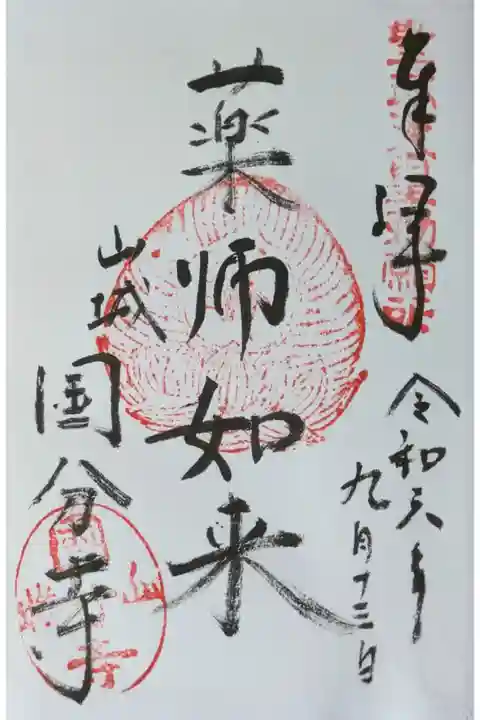 奉拝
令和六年
九月十三日
薬师如来
山城
國分寺